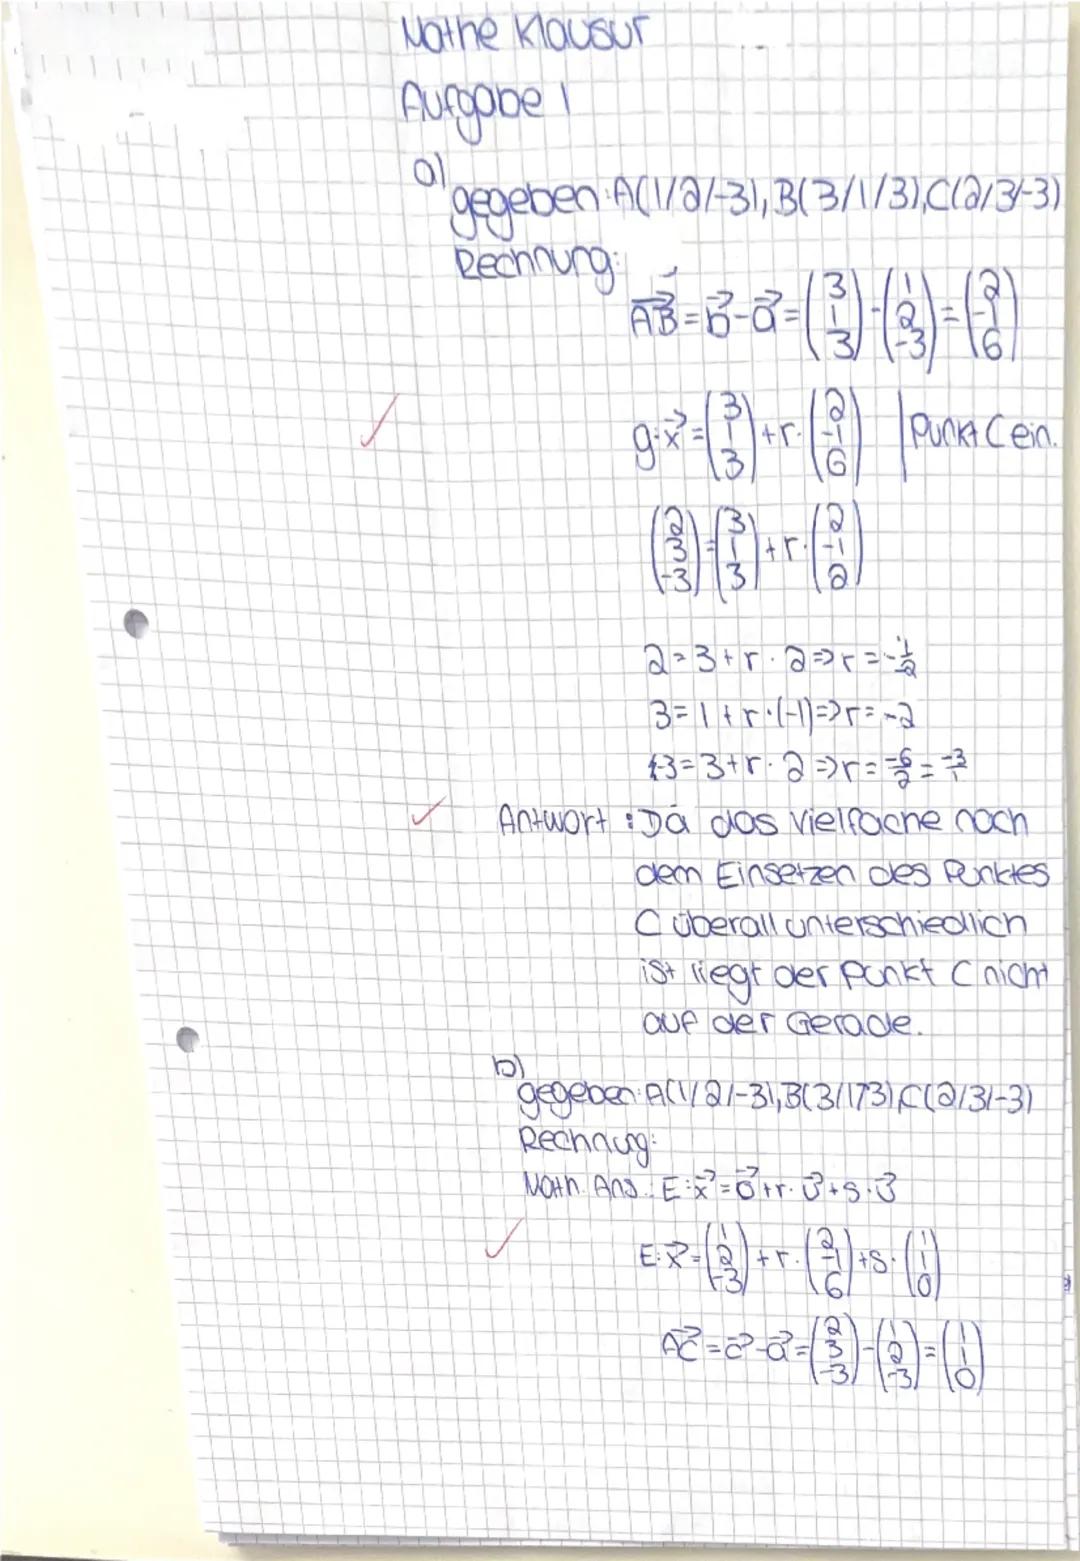 Mathe Klausur
Aufgabe 1
a)
gegeben: A(1/2/-3), B(3/1/3), C(2/3/-3)
Rechnung:
AB⃗ = b⃗ - a⃗ = (3 1 3) - (1 2 -3) = (2 -1 6)
g: x⃗ = (3 1 3) + r · (2 -1 6) | Punkt C ein.
(2 3 -3) = (3 1 3) + r · (2 -1 2)
2 = 3 + r · 2 => r = -1/2
3 = 1 + r · (-1) => r = -2
-3 = 3 + r · 2 => r = -6/2 = -3/1
Antwort: Da das Vielfache nach
dem Einsetzen des Punktes
C überall unterschiedlich
ist liegt der Punkt C nicht
auf der Gerade.
b)
gegeben: A(1/2/-3), B(3/1/3), C(2/3/-3)
Rechnug:
Math. Ans.: E: x⃗ = o⃗ + r · u⃗ + s · v⃗
E: x⃗ = (1 2 -3) + r · (2 -1 6) + s · (1 1 0)
AC⃗ = c⃗ - a⃗ = (2 3 -3) - (1 2 -3) = (1 1 0)